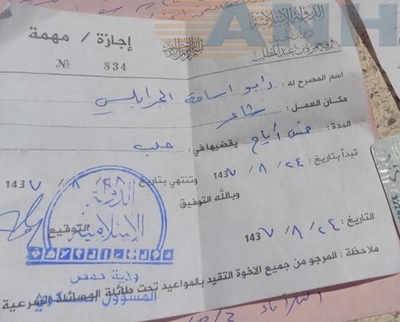 الدولة الإسلامية
إجازة / مهمة
№ 834
اسم المصرح له : ابو اسامة الجرابلسي
مكان العمل : شاعر
المدة : خمس أيام يقضيها في : حلب
تبدأ بتاريخ : ٢٤ / ٨ / ١٤٣٧ وتنتهي بتاريخ / ٨ / ١٤٣٧
وبالله التوفيق
التاريخ : ٢٤ / ٨ / ١٤٣٧ التوقيع
الدولة
الإسلامية
ولاية حمص
المسؤول العسكري
ملاحظة : المرجو من جميع الاخوة التقيد بالمواعيد تحت طائلة المسائلة الشرعية